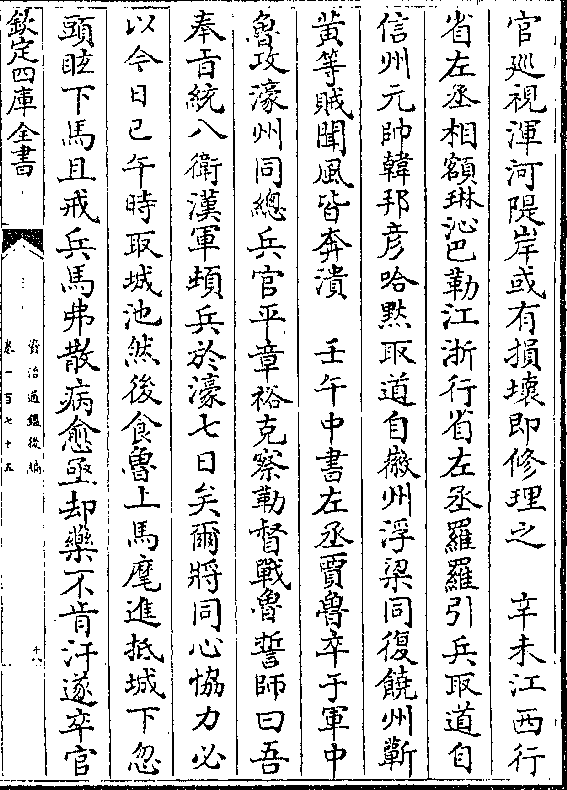 官廵視渾河隄岸或有損壊即修理之　辛未江西行
省左丞相額琳沁巴勒江浙行省左丞羅羅引兵取道自
信州元帥韓邦彦哈黙取道自徽州浮梁同復饒州蘄
黄等賊聞風皆奔潰　壬午中書左丞賈魯卒于軍中
魯攻濠州同總兵官平章裕克察勒督戰魯誓師曰吾
奉㫖統八衛漢軍頓兵於濠七日矣爾將同心恊力必
以今日巳午時取城池然後食魯上馬麾進抵城下忽
頭眩下馬且戒兵馬弗散病愈亟却藥不肯汗遂卒官
欽定四庫全書
資治通鑑後編
卷一百七十五